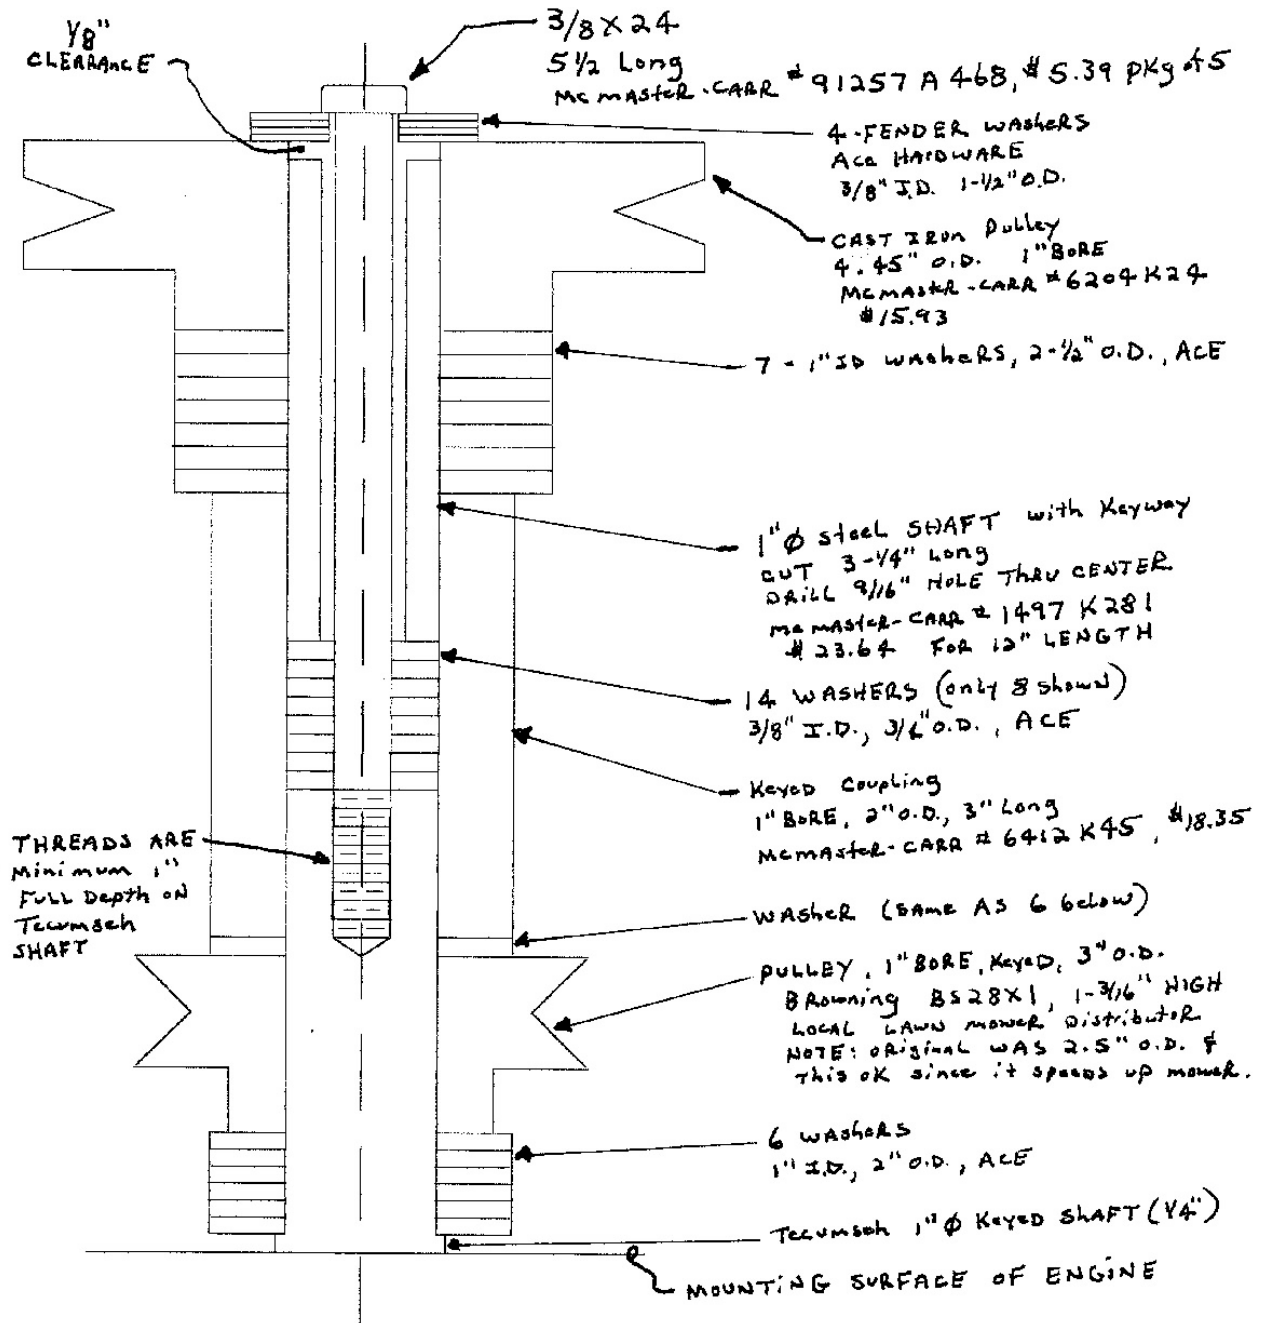 1/8"
CLEARANCE
3/8 X 24
5 1/2 Long
McMASTER-CARR # 91257 A 468, $5.39 PKg of 5
4-FENDER WASHERS
Ace HARDWARE
3/8" I.D. 1-1/2" O.D.
CAST IRON Pulley
4.45" O.D. 1" BORE
McMASTER-CARR #6204K24
$15.93
7 - 1" ID WASHERS, 2-1/2" O.D., ACE
1" Ø steel SHAFT with Keyway
CUT 3-1/4" Long
DRILL 9/16" HOLE THRU CENTER
McMASTER-CARR # 1497 K281
$23.64 FOR 12" LENGTH
14 WASHERS (only 8 shown)
3/8" I.D., O.D., ACE
Keyed Coupling
1" BORE, 2" O.D., 3" Long
McMASTER-CARR # 6412 K45, $18.35
THREADS ARE
Minimum 1"
FULL Depth ON
Tecumseh
SHAFT
WASHER (SAME AS 6 below)
PULLEY, 1" BORE, Keyed, 3" O.D.
BROWNING BS28X1, 1-3/16" HIGH
LOCAL LAWN MOWER Distributor
NOTE: ORIGINAL WAS 2.5" O.D. &
This OK since it speeds up mower.
6 WASHERS
1" I.D., 2" O.D., ACE
Tecumseh 1" Ø Keyed SHAFT (1/4")
MOUNTING SURFACE OF ENGINE